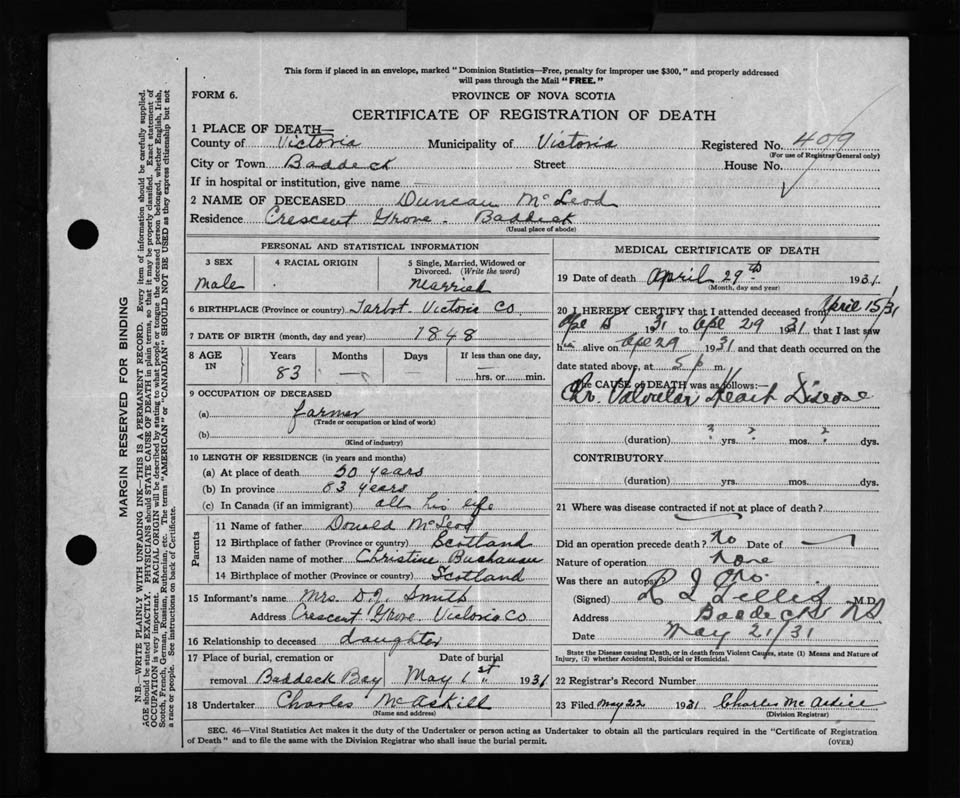 This form if placed in an envelope, marked "Dominion Statistics—Free, penalty for improper use $300," and properly addressed
will pass through the Mail "FREE."
FORM 6.
PROVINCE OF NOVA SCOTIA
CERTIFICATE OF REGISTRATION OF DEATH
1 PLACE OF DEATH—
County of Victoria Municipality of Victoria Registered No. 409
(For use of Registrar General only)
City or Town Baddeck Street House No.
If in hospital or institution, give name
2 NAME OF DECEASED Duncan McLeod
Residence Crescent Grove. Baddeck
(Usual place of abode)
PERSONAL AND STATISTICAL INFORMATION
3 SEX 4 RACIAL ORIGIN 5 Single, Married, Widowed or
Divorced. (Write the word)
Male Married
6 BIRTHPLACE (Province or country) Tarbot. Victoria Co.
7 DATE OF BIRTH (month, day and year) 1848
8 AGE IN Years Months Days If less than one day,
83 — hrs. or min.
9 OCCUPATION OF DECEASED
(a) farmer
(Trade or occupation or kind of work)
(b)
(Kind of industry)
10 LENGTH OF RESIDENCE (in years and months)
(a) At place of death 50 years
(b) In province 83 years
(c) In Canada (if an immigrant) all his life
Parents
11 Name of father Donald McLeod
12 Birthplace of father (Province or country) Scotland
13 Maiden name of mother Christine Buchanan
14 Birthplace of mother (Province or country) Scotland
15 Informant's name Mrs. D.J. Smith
Address Crescent Grove. Victoria Co
16 Relationship to deceased daughter
17 Place of burial, cremation or Date of burial
removal Baddeck Bay May 1st 1931
18 Undertaker Charles McAskill
(Name and address)
MEDICAL CERTIFICATE OF DEATH
19 Date of death April 29th 1931.
(Month, day and year)
20 I HEREBY CERTIFY that I attended deceased from April 15/31
1931 to Apl 29 1931 that I last saw
him alive on Apl 29 1931 and that death occurred on the
date stated above, at 5 p m.
The CAUSE of DEATH was as follows:—
Chr. Valvular Heart Disease
(duration) ? yrs. ? mos. ? dys.
CONTRIBUTORY
(duration) yrs. mos. dys.
21 Where was disease contracted if not at place of death?
Did an operation precede death? No Date of —
Nature of operation None
Was there an autopsy? No.
(Signed) M.D.
Address Baddeck NS
Date May 21/31
State the Disease causing Death, or in death from Violent Causes, state (1) Means and Nature of
Injury, (2) whether Accidental, Suicidal or Homicidal.
22 Registrar's Record Number
23 Filed May 22 1931 Charles
(Division Registrar)
SEC. 46—Vital Statistics Act makes it the duty of the Undertaker or person acting as Undertaker to obtain all the particulars required in the "Certificate of Registration
of Death" and to file the same with the Division Registrar who shall issue the burial permit.
(OVER)
MARGIN RESERVED FOR BINDING
N.B.—WRITE PLAINLY WITH UNFADING INK—THIS IS A PERMANENT RECORD. Every item of information should be carefully supplied.
AGE should be stated EXACTLY. PHYSICIANS should STATE CAUSE OF DEATH in plain terms, so that it may be properly classified. Exact statement of
OCCUPATION is very important. RACIAL ORIGIN will be described by stating to what people or tongue the deceased person belonged, whether English, Irish,
Scotch, French, German, Russian, Ruthenian, etc. The terms "AMERICAN" or "CANADIAN" SHOULD NOT BE USED as they express citizenship but not
a race or people. See instructions on back of Certificate.